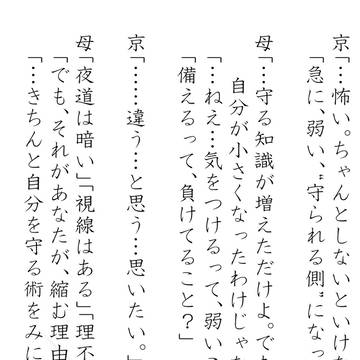 京「…怖い。ちゃんとしないといけな
「急に、弱い、〝守られる側〟にな
母「…守る知識が増えただけよ。で
自分が小さくなったわけじゃ
「…ねえ…気をつけるって、弱い
「備えるって、負けてること？」
京「……違う…と思う…思いたい。」
母「夜道は暗い」「視線はある」「理不
「でも、それがあなたが、縮む理由
「…きちんと自分を守る術をみに